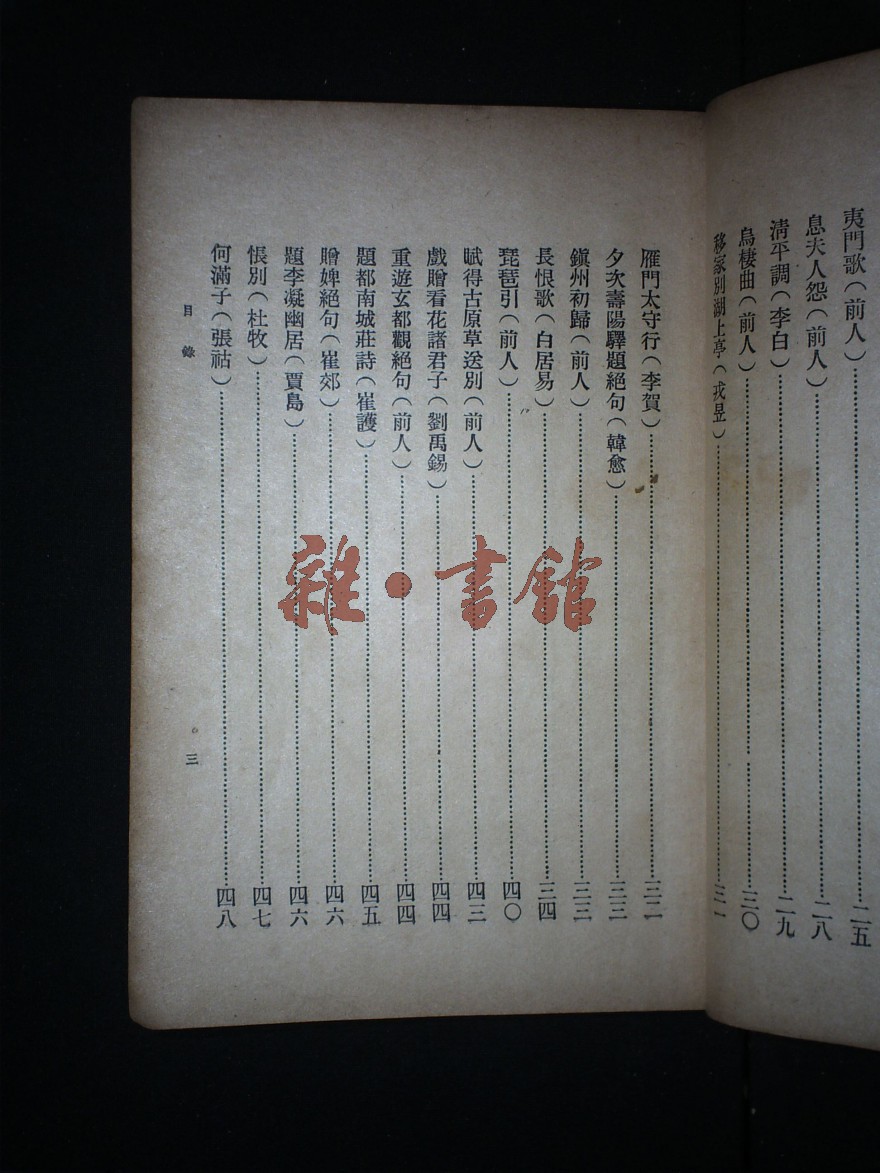 夷門歌（前人）……二五
息夫人怨（前人）……二八
清平調（李白）……二九
烏棲曲（前人）……三〇
移家別湖上亭（戎昱）……三一
雁門太守行（李賀）……三二
夕次壽陽驛題絕句（韓愈）……三三
鎭州初歸（前人）……三三
長恨歌（白居易）……三四
琵琶引（前人）……四〇
賦得古原草送別（前人）……四三
戲贈看花諸君子（劉禹錫）……四四
重遊玄都觀絕句（前人）……四四
題都南城莊詩（崔護）……四五
贈婢絕句（崔郊）……四六
題李凝幽居（賈島）……四六
悵別（杜牧）……四七
何滿子（張祜）……四八
目錄
三
雜·書館